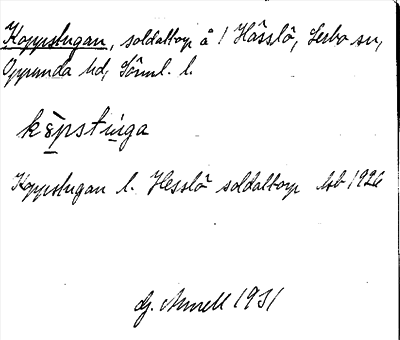 Koppstugan, soldattorp å 1 Hässlö, Lerbo sn,
Oppunda hd, Södml. l.
köpstuga
Koppstugan l. Hesslö soldattorp Jsb 1926
1931